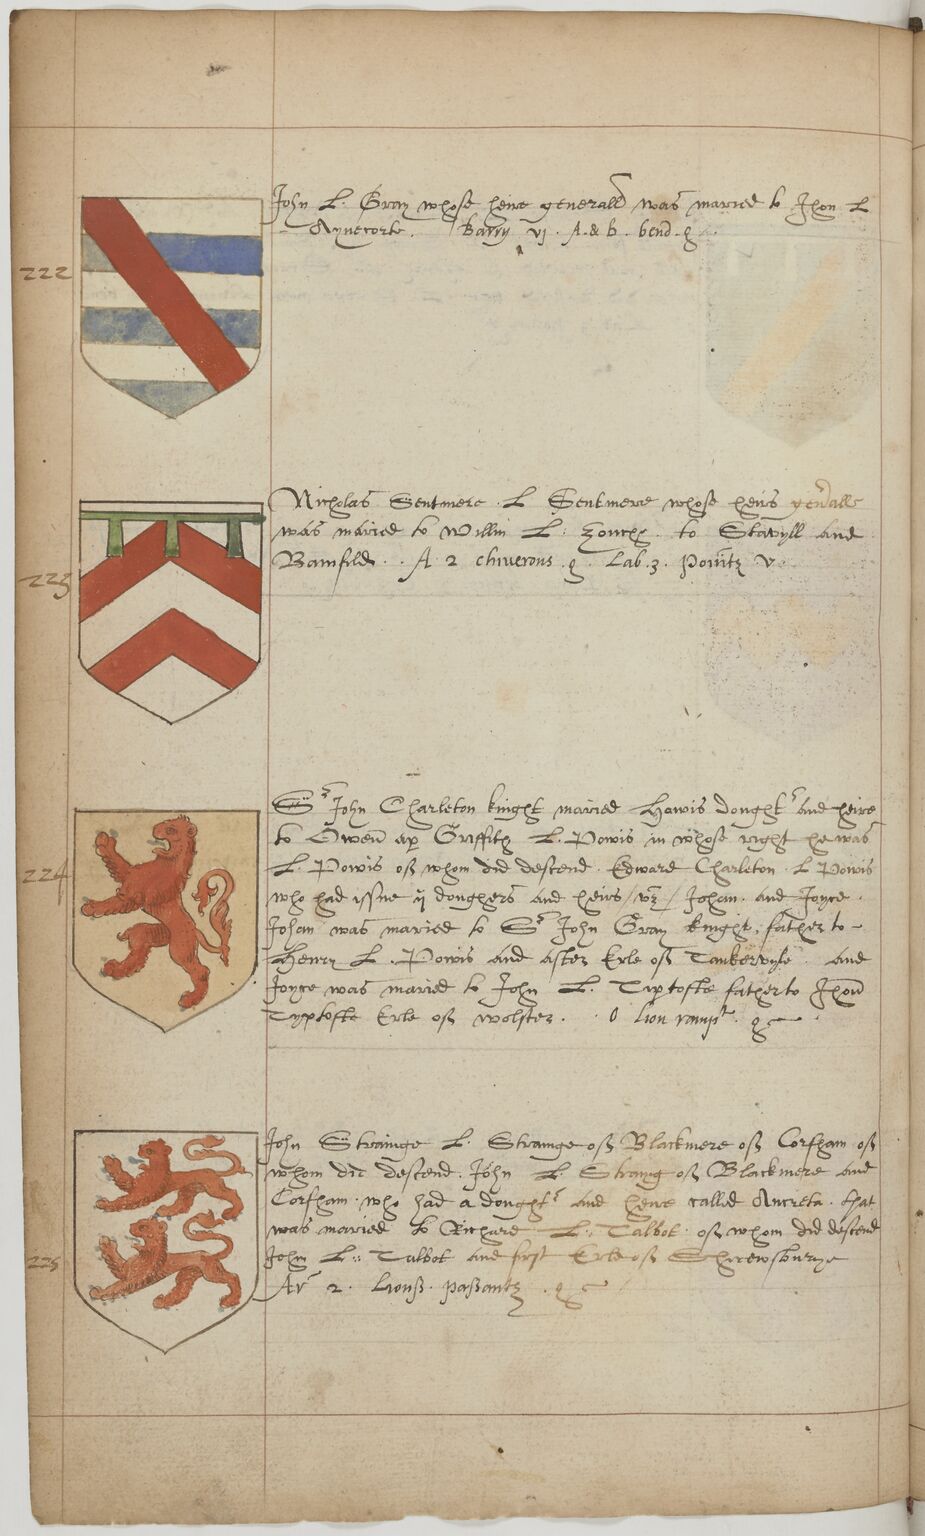 222
John L. Gray whose heire generall was maried to Jhon L
Aynecorte. Barry vj. A. & b. bend. g
223
Nicholas Sentmere. L Sentmere whose heirs gen'alls
was maried to Willm L. Zouche. to Stawyll and
Bamfild. A 2 cheverons. g. Lab. 3. Pointz V.
224
Sr John Charleton knight maried Hawis doughtr and heire
to Owen ap Griffith L. Powis in whose right he was
L. Powis off whom did descend Edward Charleton. L Powis
who had issue ij doughers and heirs / vz / Johan. and Joyce.
Johan was maried to Sr John Gray knight, father to -
Henry L. Powis and after Erle off Tankervyle and
Joyce was maried to John L. Tiptofte father to Jhon
Typtofte Erle off wolster. O lion rampt. g
225
John Strainge L. Strainge off Blackmere off Corfham off
whom did descend. John L Straing off Blackmere and
Corfham. who had a doughtr and heire called Ancreta. that
was maried to Richard L. Talbot. off whom did descend
John L. Talbot and first Erle off Schrewsburye
Ar 2. Lions. passants. g